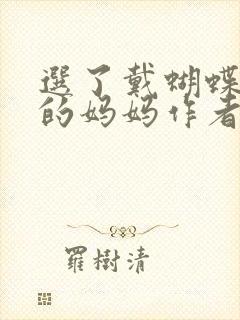 選了戴蝴蝶
的妈妈作者
羅樹清